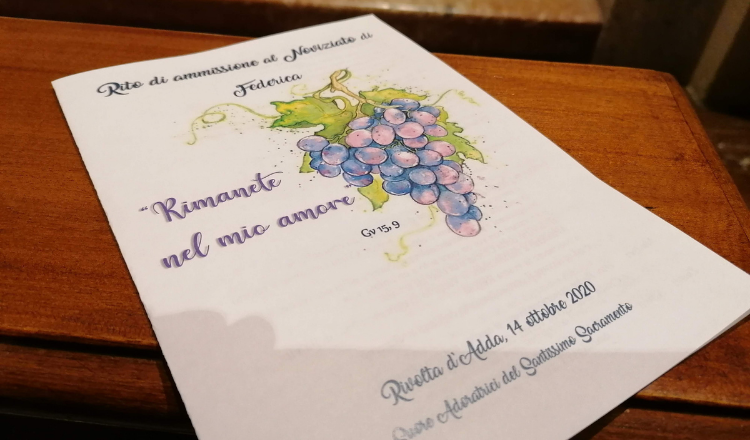 Rito di ammissione al Noviziato di
Federica
"Rimanete
nel mio amore"
Gv 15, 9
Rivolta d'Adda, 14 ottobre 2020
Suore Adoratrici del Santissimo Sacramento